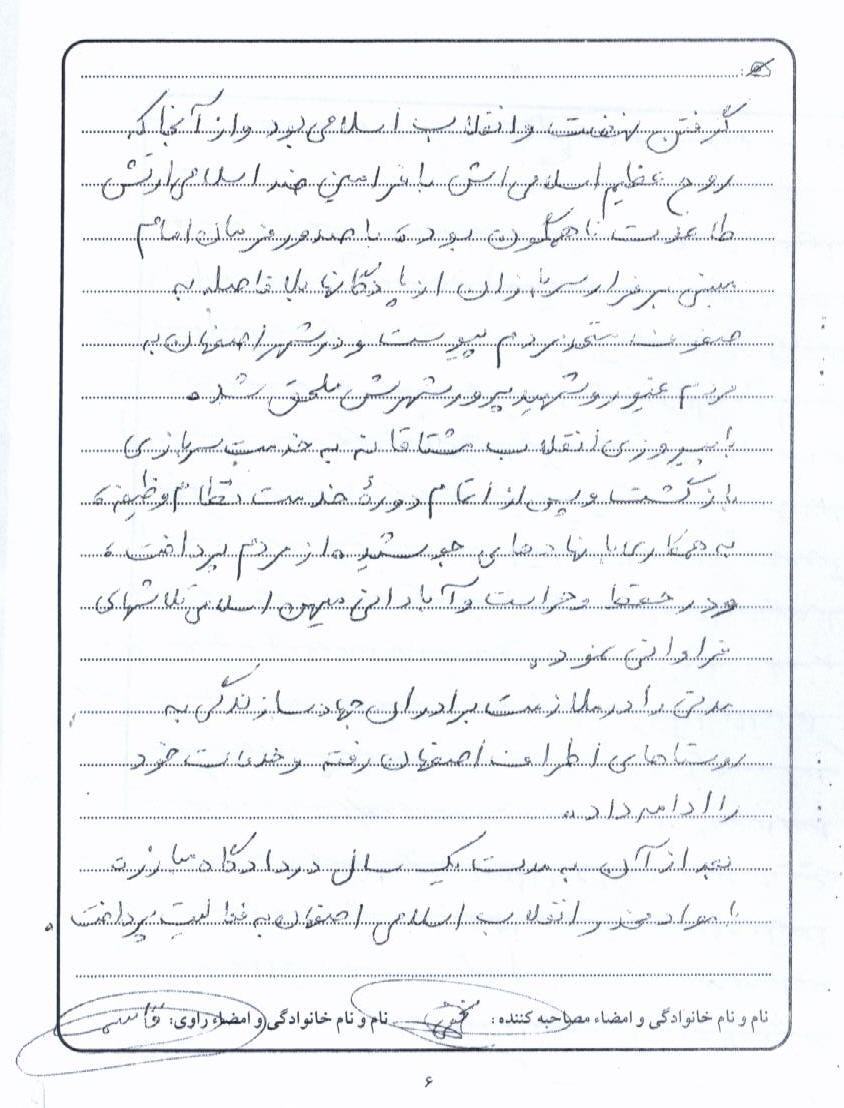 گرفتن نهضت و انقلاب اسلامی بود و از آنجا که
روح عظیم اسلامی اش با فرامین ضد اسلامی ارتش
طاغوت ناهمگون بود، با صدور فرمان امام
مبنی بر فرار سربازان از پادگانها بلافاصله به
صفوف متحد مردم پیوست و در شهر اصفهان به
مردم غیور و شهید پرور شهرش ملحق شد.
با پیروزی انقلاب مشتاقانه به خدمت سربازی
بازگشت و پس از اتمام دورهٔ خدمت نظام وظیفه،
به همکاری با نهادهای جوشیده از مردم پرداخت،
و در حفظ و حراست و آبادانی میهن اسلامی تلاشهای
فراوانی نمود.
مدتی را در ملازمت برادران جهاد سازندگی به
روستاهای اطراف اصفهان رفته و خدمات خود
را ادامه داد.
بعد از آن به مدت یک سال در دادگاه مبارزه
با مواد مخدر انقلاب اسلامی اصفهان به فعالیت پرداخت.
نام و نام خانوادگی و امضاء مصاحبه کننده: نام و نام خانوادگی و امضاء راوی:
۶